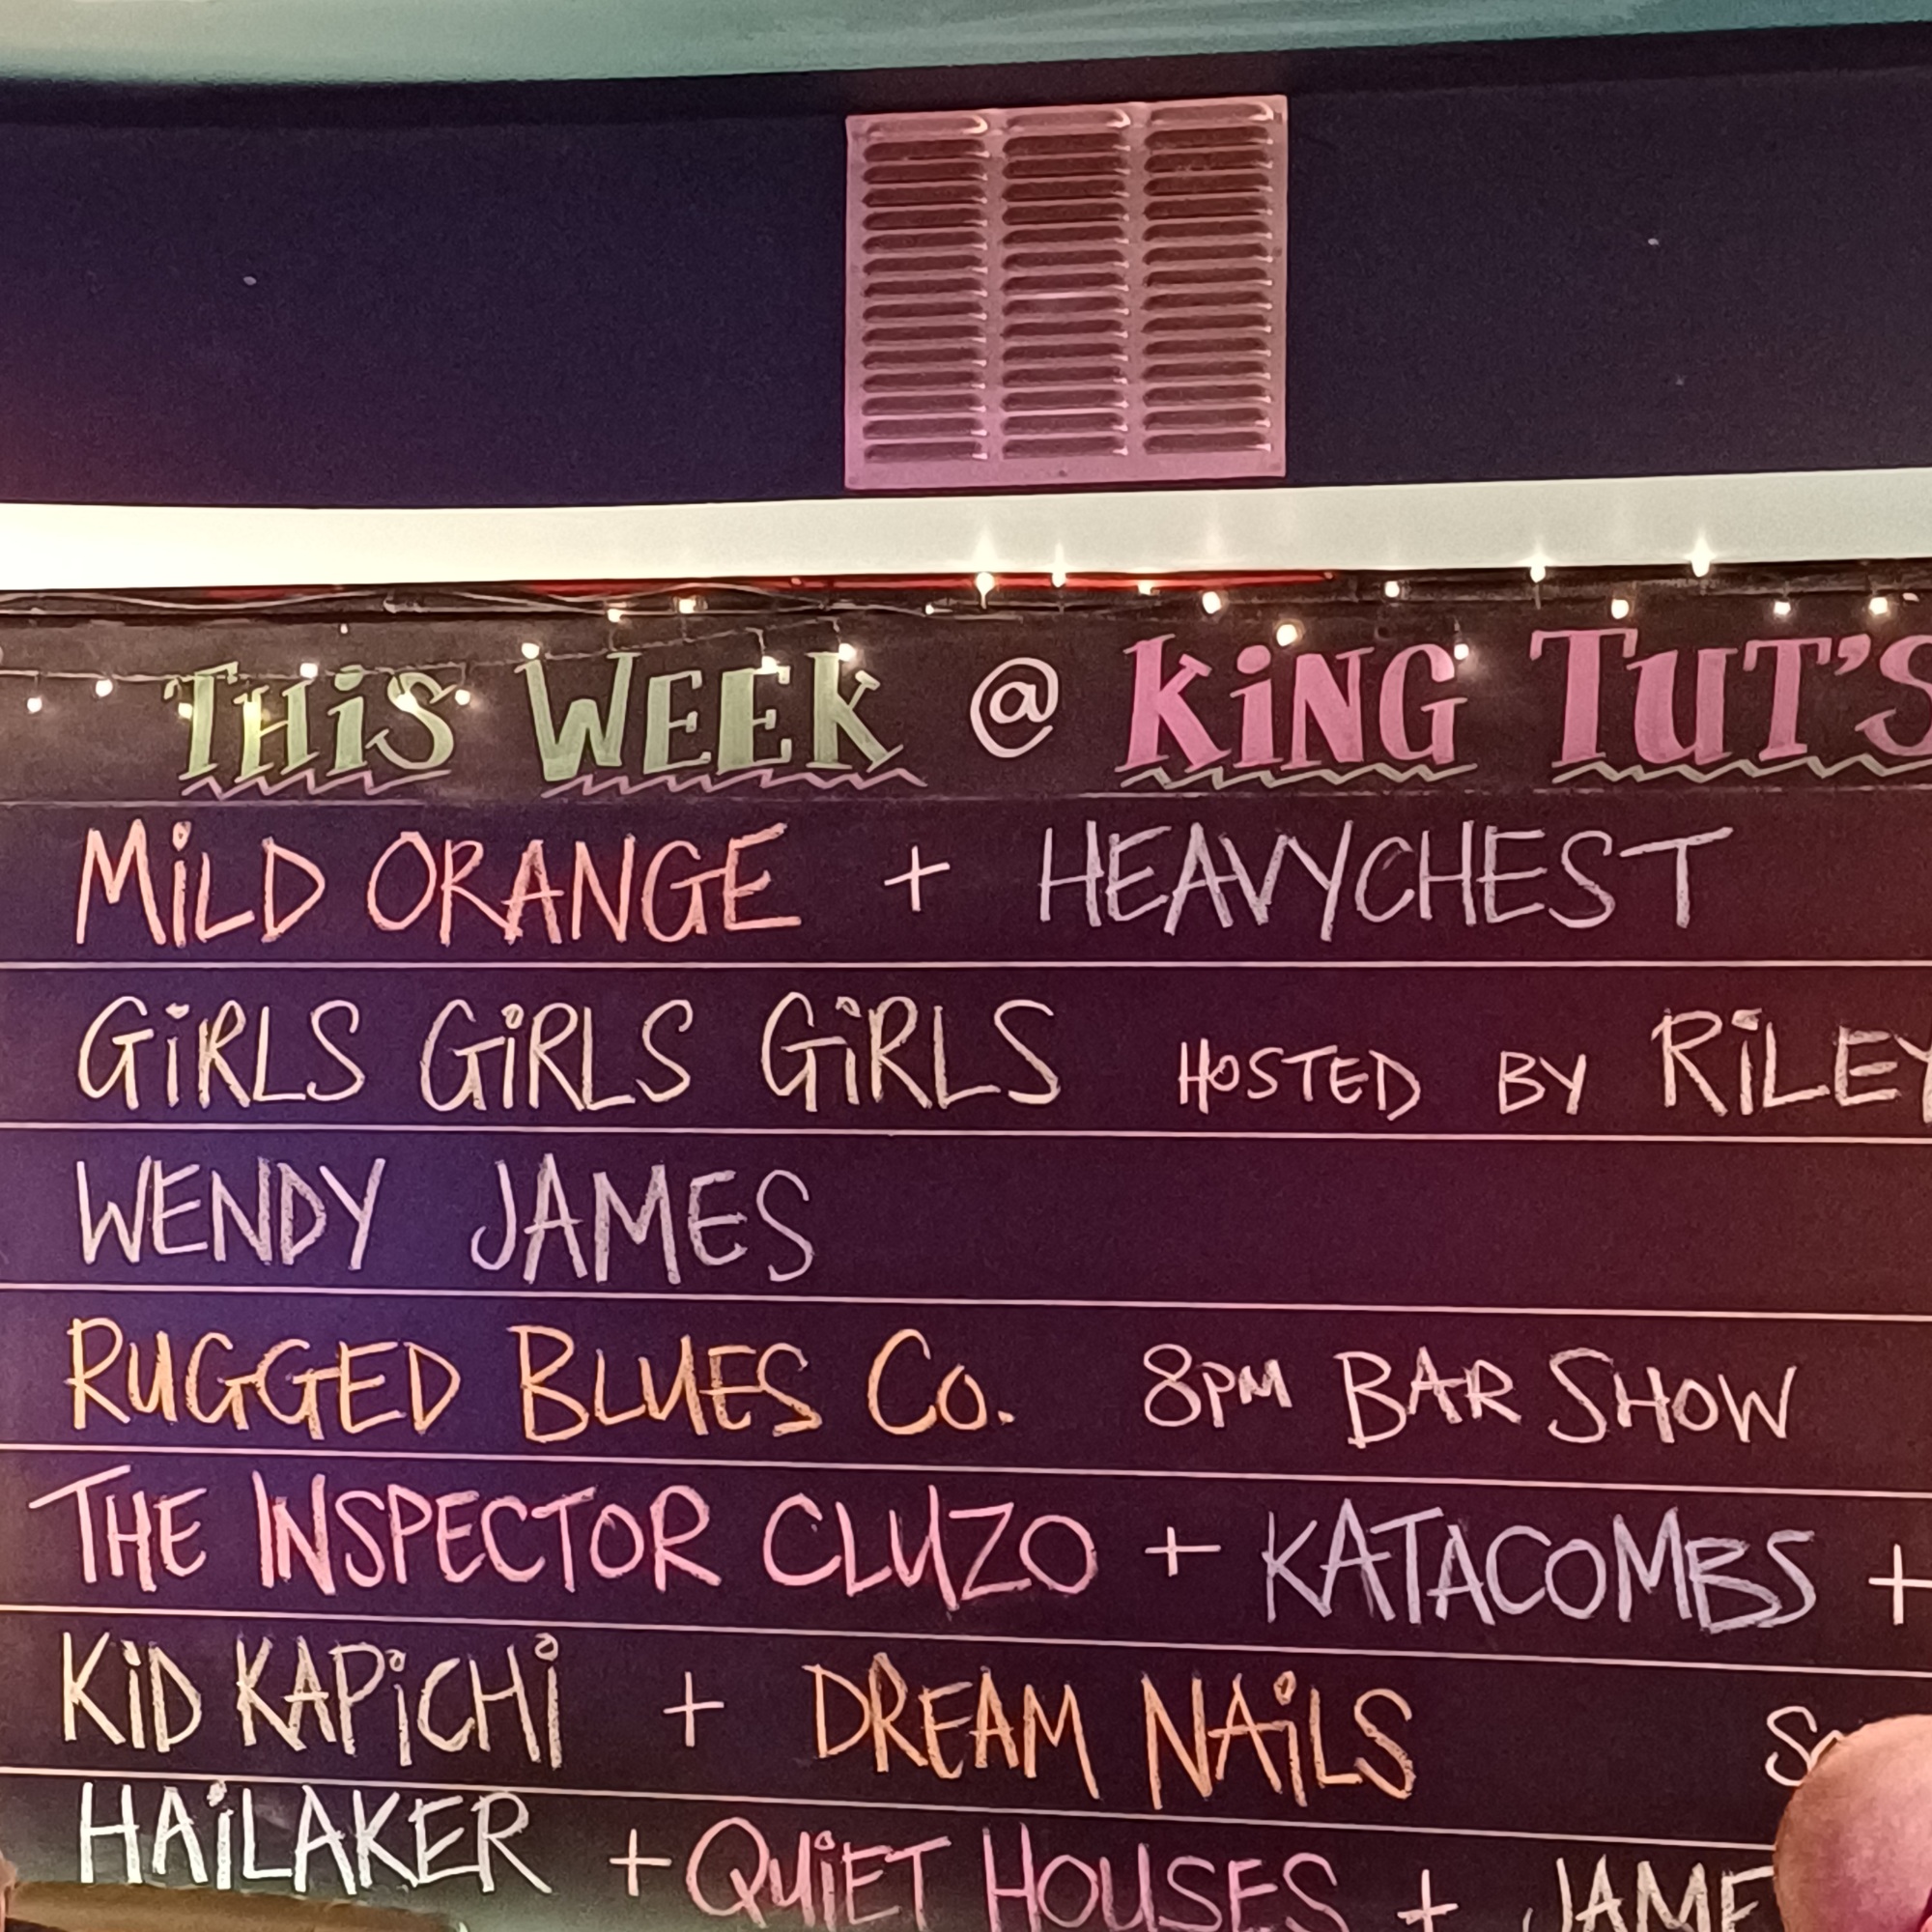 THiS WEEK @ KiNG TUT'S
MiLD ORANGE + HEAVYCHEST
GiRLS GiRLS GiRLS HOSTED BY RiLEY
WENDY JAMES
RUGGED BLUES CO. 8PM BAR SHOW
THE INSPECTOR CLUZO + KATACOMBS +
KiD KAPiCHi + DREAM NAiLS
HAiLAKER + QUiET HOUSES +